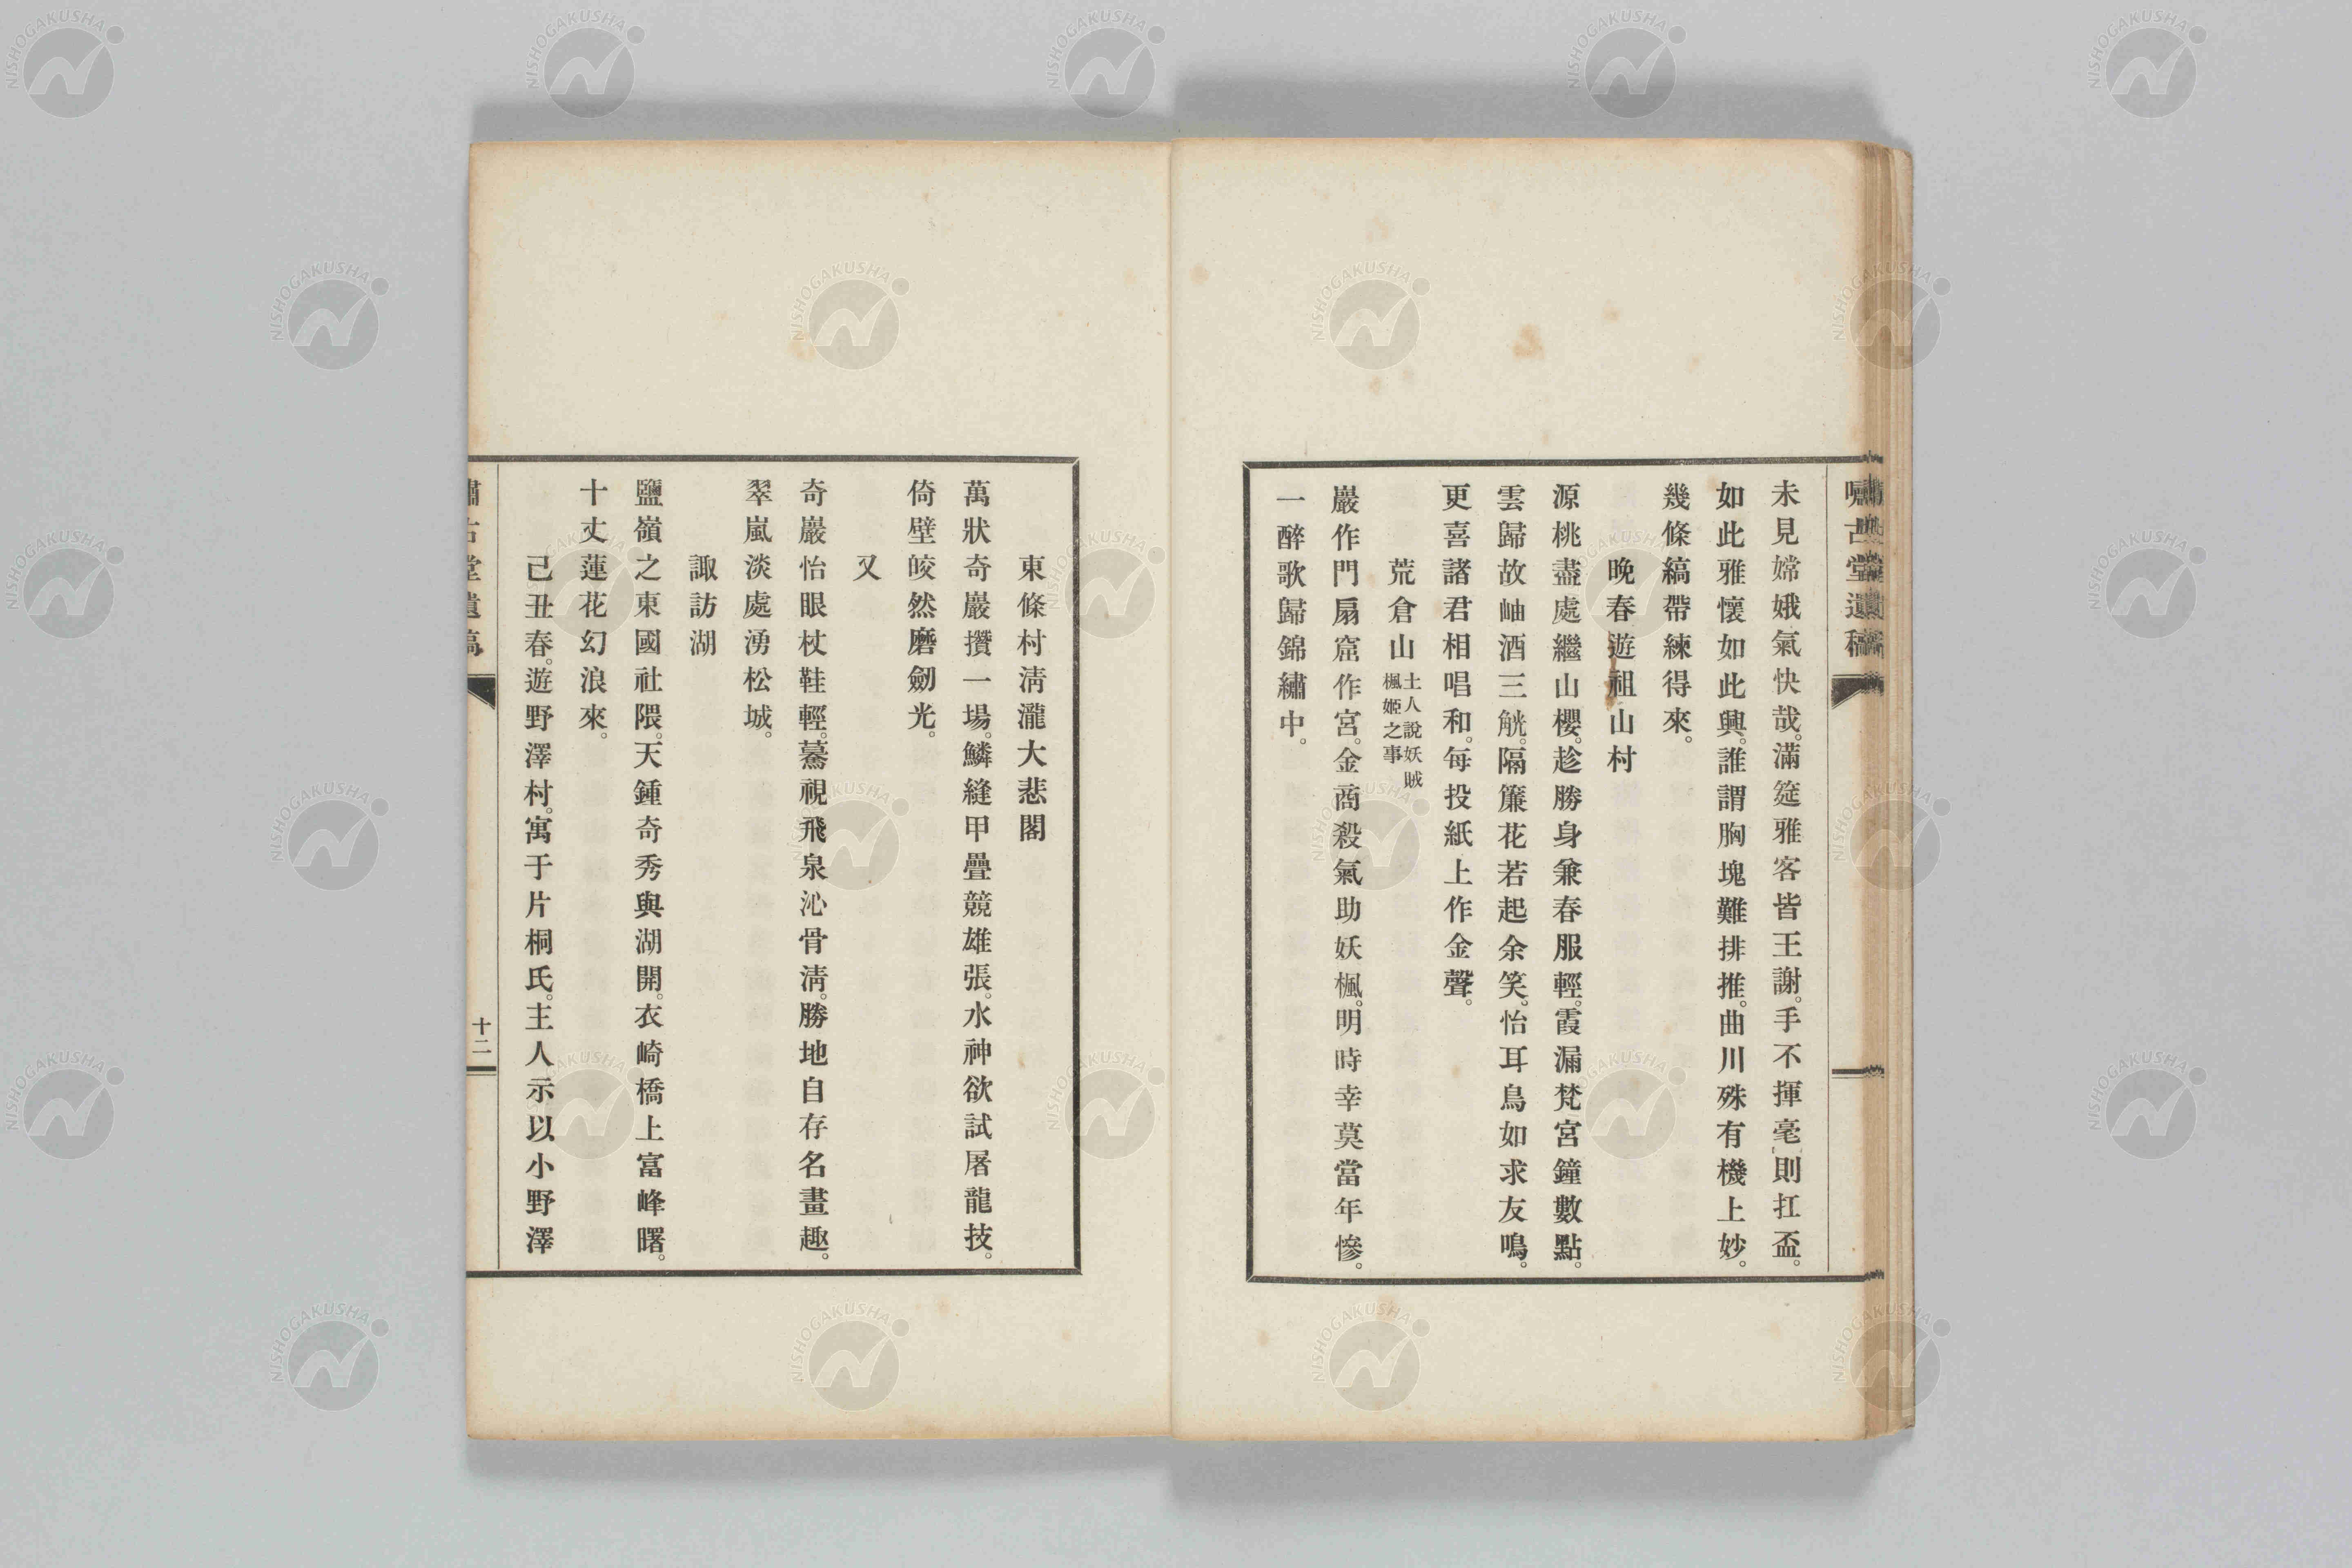 嘯古堂遺稿
未見嫦娥氣快哉。滿筵雅客皆王謝。手不揮毫則扛盃。
如此雅懷如此興。誰謂胸塊難排推。曲川殊有機上妙。
幾條縞帶練得來。
晚春遊祖山村
源桃盡處繼山櫻。趁勝身兼春服輕。霞漏梵宮鐘數點。
雲歸故岫酒三觥。隔簾花若起余笑。怡耳鳥如求友鳴。
更喜諸君相唱和。每投紙上作金聲。
荒倉山 土人說妖賊楓姬之事
巖作門扇窟作宮。金商殺氣助妖楓。明時幸莫當年慘。
一醉歌歸錦繡中。
東條村淸瀧大悲閣
萬狀奇巖攢一場。鱗縫甲疊競雄張。水神欲試屠龍技。
倚壁皎然磨劒光。
又
奇巖怡眼杖鞋輕。驀視飛泉沁骨淸。勝地自存名畫趣。
翠嵐淡處湧松城。
諏訪湖
鹽嶺之東國社隈。天鍾奇秀與湖開。衣崎橋上富峰曙。
十丈蓮花幻浪來。
己丑春。遊野澤村。寓于片桐氏。主人示以小野澤
嘯古堂遺稿
十二
NISHOGAKUSHA